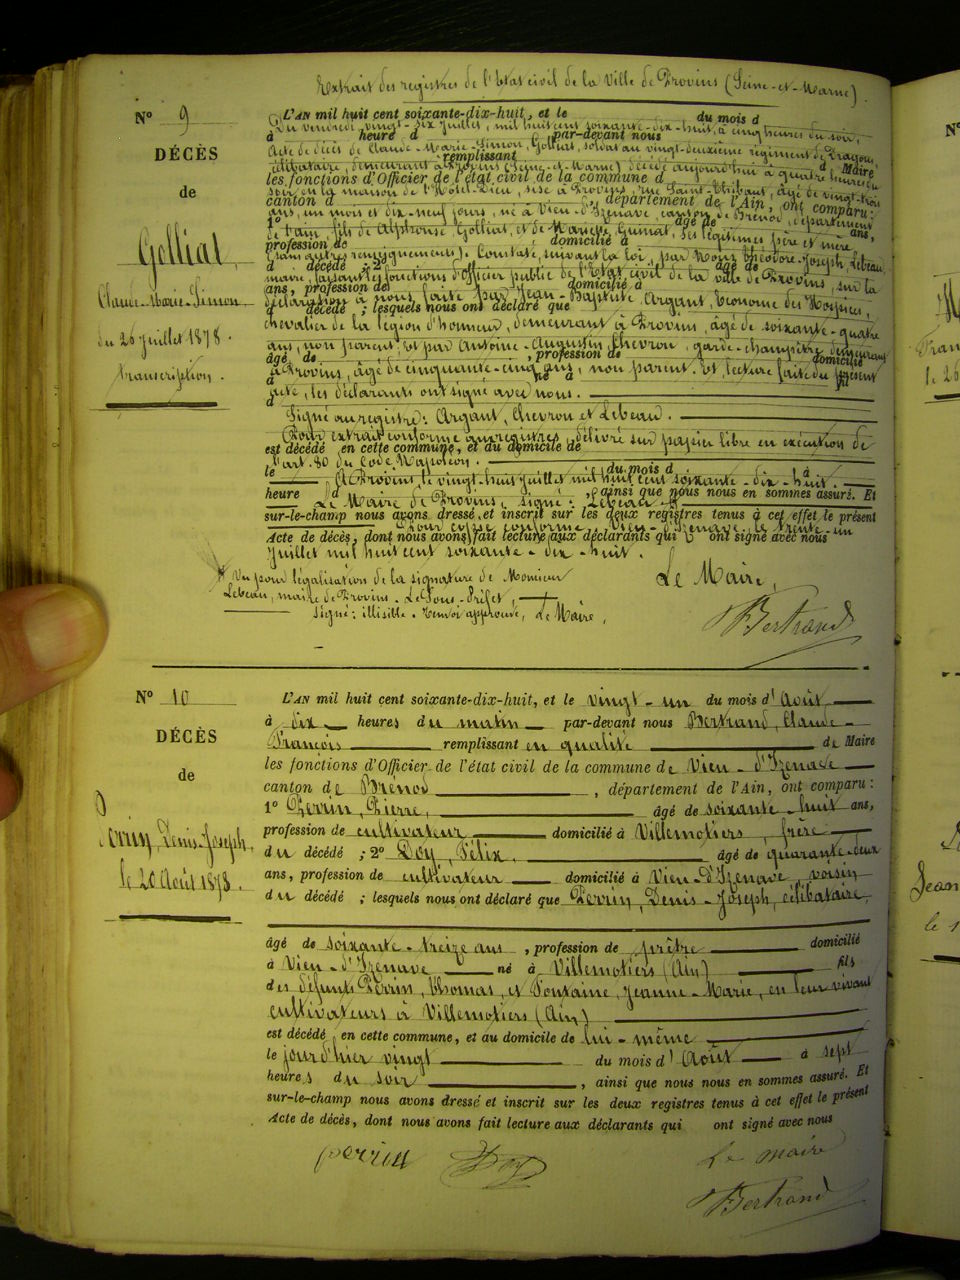 Extrait des registres de l'Etat civil de la Ville de Provins (Seine-et-Marne)
N° 9
DÉCÈS
de
Golliat,
Claude-Marie-Simon
du 26 juillet 1878.
transcription.
L'AN mil huit cent soixante-dix-huit, et le du mois d
Du vendredi vingt-six juillet, mil huit cent soixante-dix-huit, à cinq heures du soir,
à heure d par-devant nous
Acte de décès de Claude-Marie-Simon, Golliat, soldat au vingt-deuxième régiment de Dragons,
remplissant d Maire
célibataire, demeurant à Provins (Seine-et-Marne) décédé aujourd'hui à quatre heures du
les fonctions d'Officier de l'état civil de la commune d
soir en la maison de l'Hôtel-Dieu, sise à Provins, rue Saint-Thibaut, âgé de vingt-trois
canton d , département de l'Ain, ont comparu:
ans, un mois et dix-neuf jours, né à Vieu-d'Izenave canton de Brénod, département
1° âgé de ans,
de l'ain, fils de Alphonse Golliat, et de Guinat, ses légitimes père et mère
profession de domicilié à
(sans autres renseignements). Constaté, suivant la loi, par Nous Théodore-Joseph Lebeau,
d décédé ; 2° âgé de
maire, faisant fonctions d'Officier public de l'Etat civil de la ville de Provins, sur la
ans, profession de domicilié à
déclaration à nous faite par Jean-Baptiste Argant, Econome des Hospices,
d décédé ; lesquels nous ont déclaré que
chevalier de la légion d'honneur, demeurant à Provins, âgé de soixante-quatre
ans, non parent; et par Antoine-Augustin Chevron, garde-champêtre demeurant
âgé de , profession de domicilié
à Provins, âgé de cinquante-cinq ans, non parent. Et lecture faite du présent
à né à fil
acte, les déclarants ont signé avec nous.
d
Signé au registre: Argant, Chevron et Lebeau.
Pour extrait conforme aux registres, délivré sur papier libre en exécution de
est décédé en cette commune, et au domicile de
l'art. 80 du Code Napoléon.
le du mois d à
A Provins, le vingt-huit juillet mil huit cent soixante-dix-huit.
heure d , ainsi que nous nous en sommes assuré. Et
Le Maire de Provins, signé: Lebeau
sur-le-champ nous avons dressé et inscrit sur les deux registres tenus à cet effet le présent
Pour copie conforme, Vieu-d'Izenave, le trente-un
Acte de décès, dont nous avons fait lecture aux déclarants qui ont signé avec nous
Juillet mil huit cent soixante-dix-huit.
Vu pour légalisation de la signature de Monsieur
Lebeau, maire de Provins. Le Sous-Préfet,
signé: illisible. Renvoi approuvé, Le Maire,
Le Maire,
Bertrand
N° 10
DÉCÈS
de
Perrin, Denis-Joseph,
le 20 Août 1878.
L'AN mil huit cent soixante-dix-huit, et le vingt-un du mois d'Août,
à dix heures du matin par-devant nous Bertrand, Claude-
François remplissant en qualité de Maire
les fonctions d'Officier de l'état civil de la commune de Vieu-d'Izenave
canton de Brénod , département de l'Ain, ont comparu:
1° Perrin, Pierre, âgé de soixante-huit ans,
profession de cultivateur domicilié à Villemotiers, frère
du décédé ; 2° Doy, Félix, âgé de quarante-deux
ans, profession de cultivateur domicilié à Vieu-D'Izenave, voisin
du décédé ; lesquels nous ont déclaré que Perrin, Denis-Joseph, célibataire,
âgé de soixante-treize ans , profession de prêtre domicilié
à Vieu-d'Izenave né à Villemotiers (Ain) fils
des défunts Perrin, Thomas, et Fontaine, Jeanne-Marie, en leur vivant
cultivateurs à Villemotiers (Ain)
est décédé en cette commune, et au domicile de lui-même
le jourd'hier vingt du mois d'Août à sept
heures du soir , ainsi que nous nous en sommes assuré. Et
sur-le-champ nous avons dressé et inscrit sur les deux registres tenus à cet effet le présent
Acte de décès, dont nous avons fait lecture aux déclarants qui ont signé avec nous
perrin Doy Le maire
Bertrand